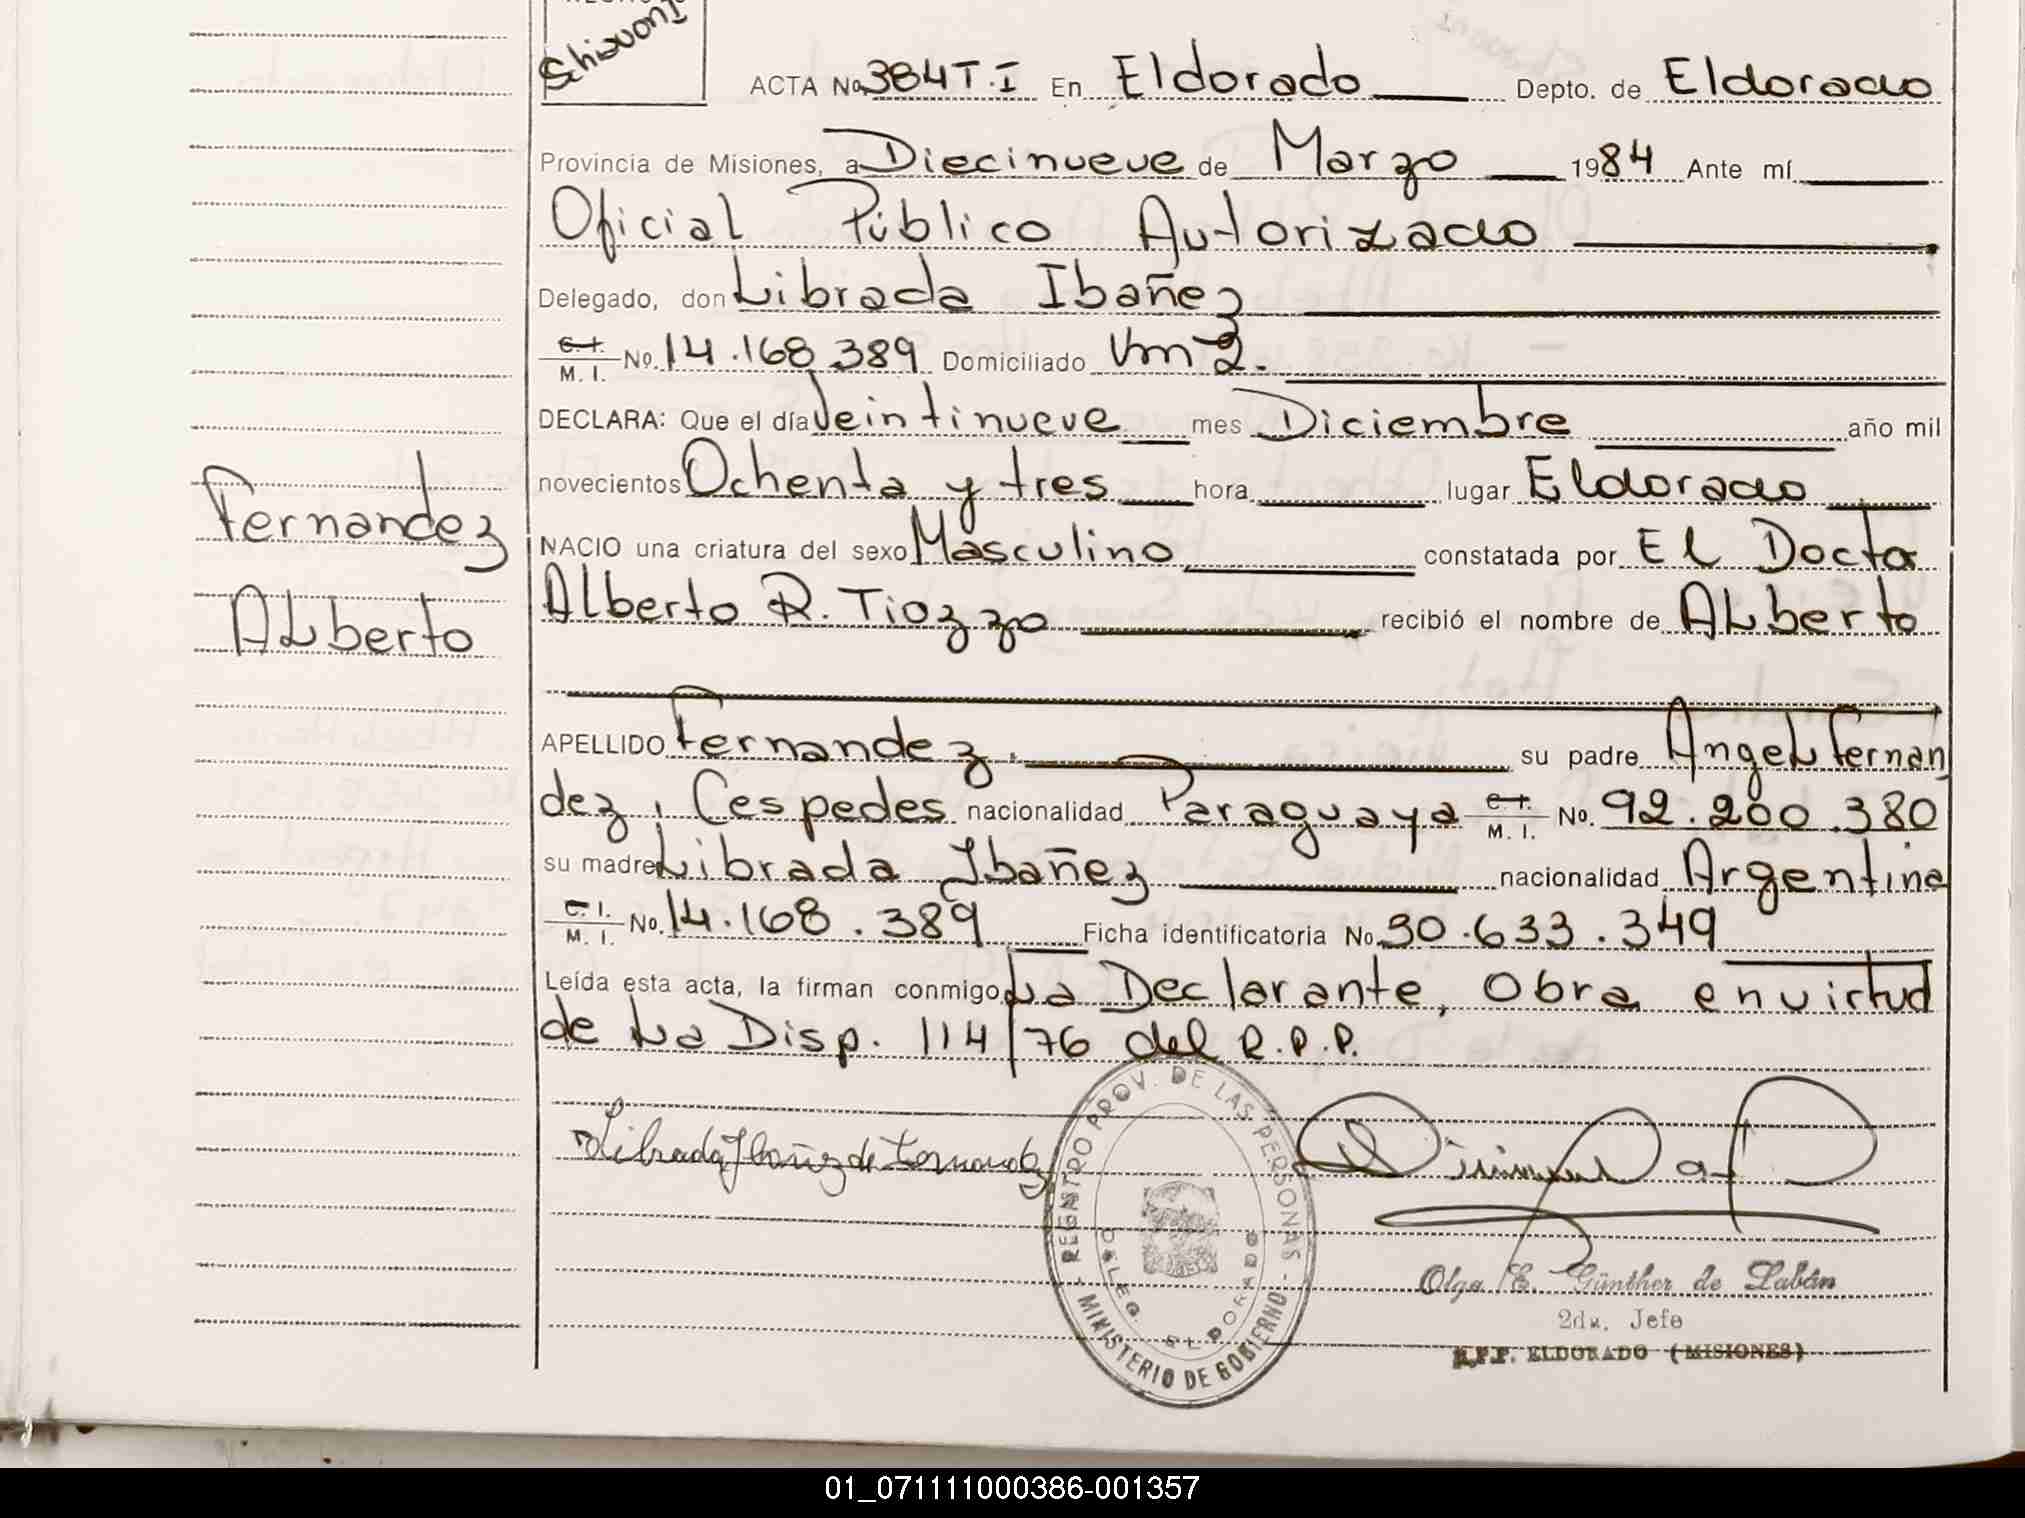 Schiavoni
ACTA No. 384 T.I En Eldorado Depto. de Eldorado
Provincia de Misiones, a Diecinueve de Marzo 1984 Ante mí
Oficial Público Autorizado
Delegado, don Librada Ibañez
C.I. M. I. No. 14.168.389 Domiciliado Km 2.
DECLARA: Que el día Veintinueve mes Diciembre año mil
novecientos Ochenta y tres hora lugar Eldorado
Fernandez
NACIO una criatura del sexo Masculino constatada por El Doctor
Alberto
Alberto R. Tiozzo recibió el nombre de Alberto
APELLIDO Fernandez. su padre Angel Fernan
dez, Cespedes nacionalidad Paraguaya C.I. M. I. No. 92.200.380
su madre Librada Ibañez nacionalidad Argentina
C.I. M. I. No. 14.168.389 Ficha identificatoria No. 30.633.349
Leída esta acta, la firman conmigo La Declarante, Obra en virtud
de La Disp. 114/76 del R.P.P.
Librada Ibañez de Fernandez
REGISTRO PROV. DE LAS PERSONAS
DELEG. ELDORADO
MINISTERIO DE GOBIERNO
Olga E. Günther de Labán
2da. Jefe
R.P.P. ELDORADO (MISIONES)
01_071111000386-001357